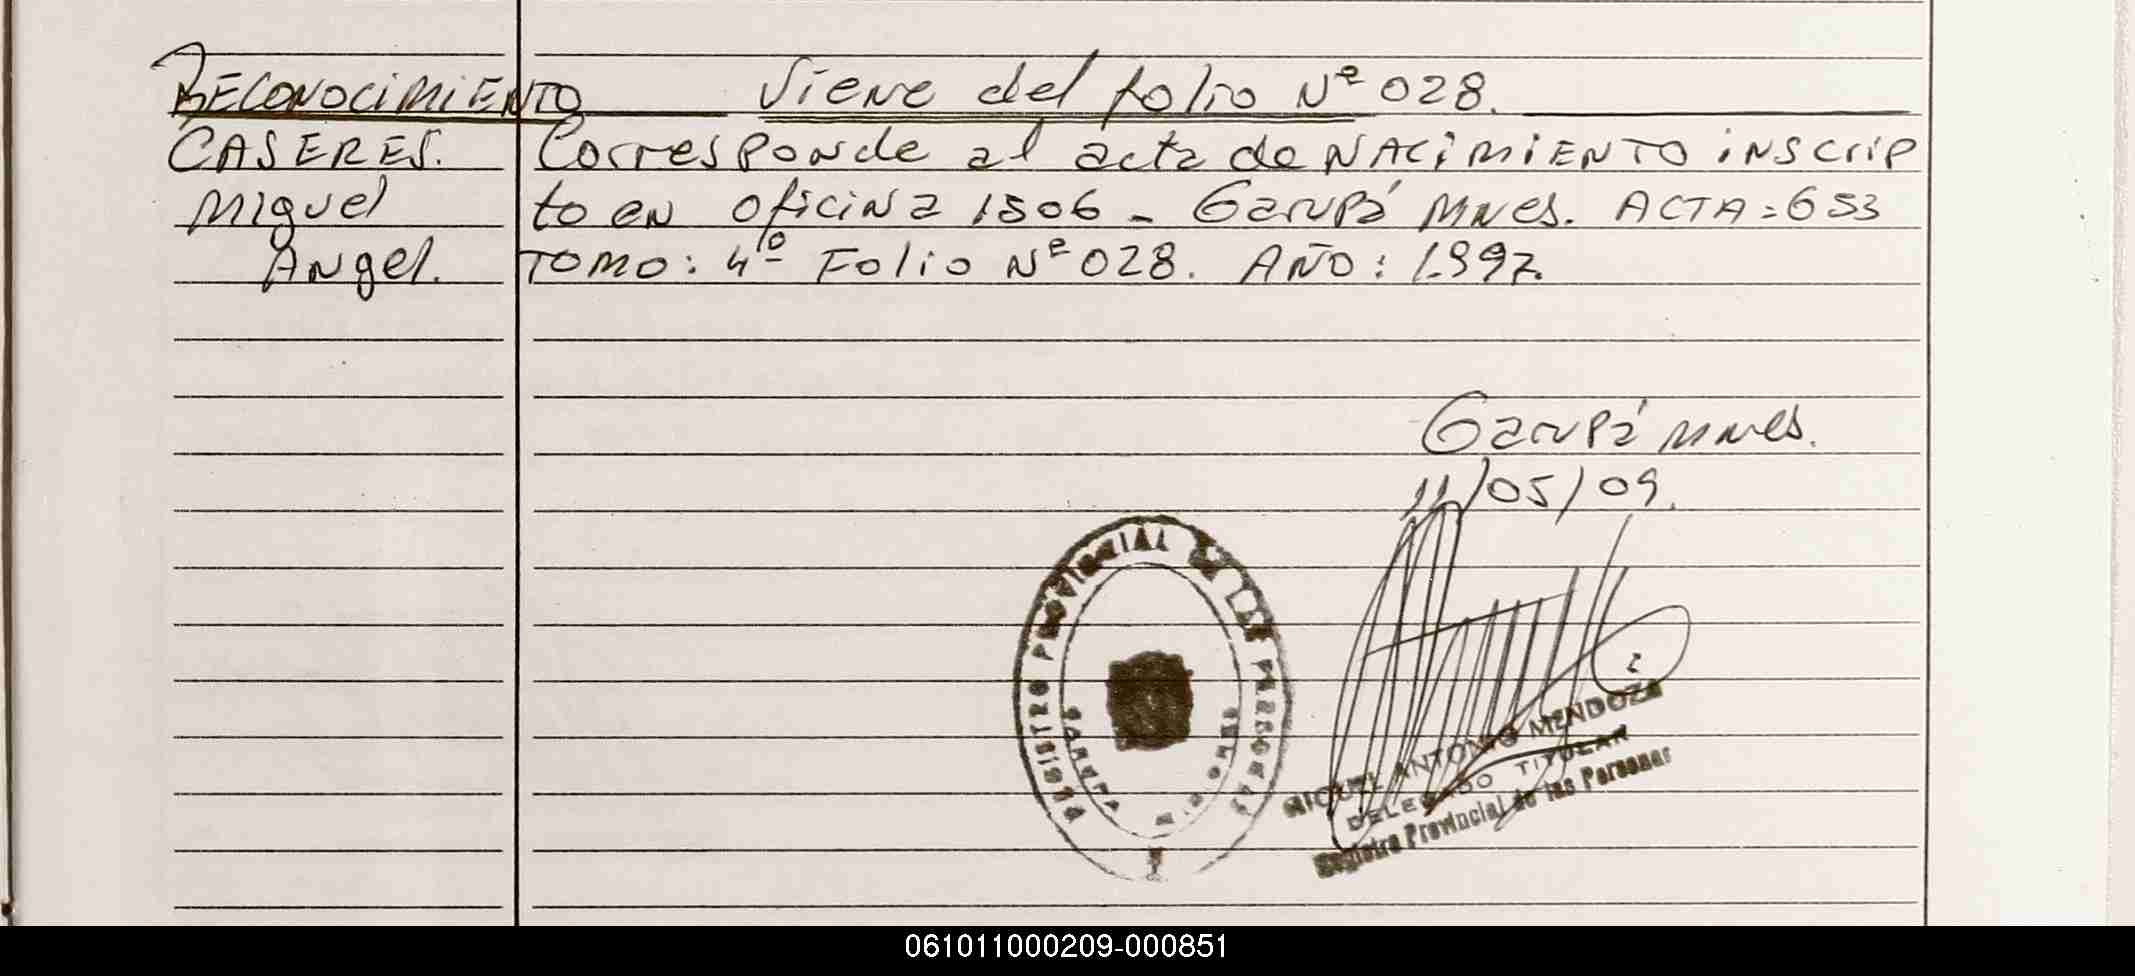 RECONOCIMIENTO
Viene del folio Nº 028.
CASERES.
Miguel
Angel.
Corresponde al acta de NACIMIENTO inscrip
to en oficina 1506 - Garupá Mnes. ACTA = 653
TOMO: 4º Folio Nº 028. AÑO: 1.997.
Garupá Mnes.
11/05/09.
REGISTRO PROVINCIAL DE LAS PERSONAS
GARUPA
MIGUEL ANTONIO MENDOZA
DELEGADO TITULAR
Registro Provincial de las Personas
061011000209-000851